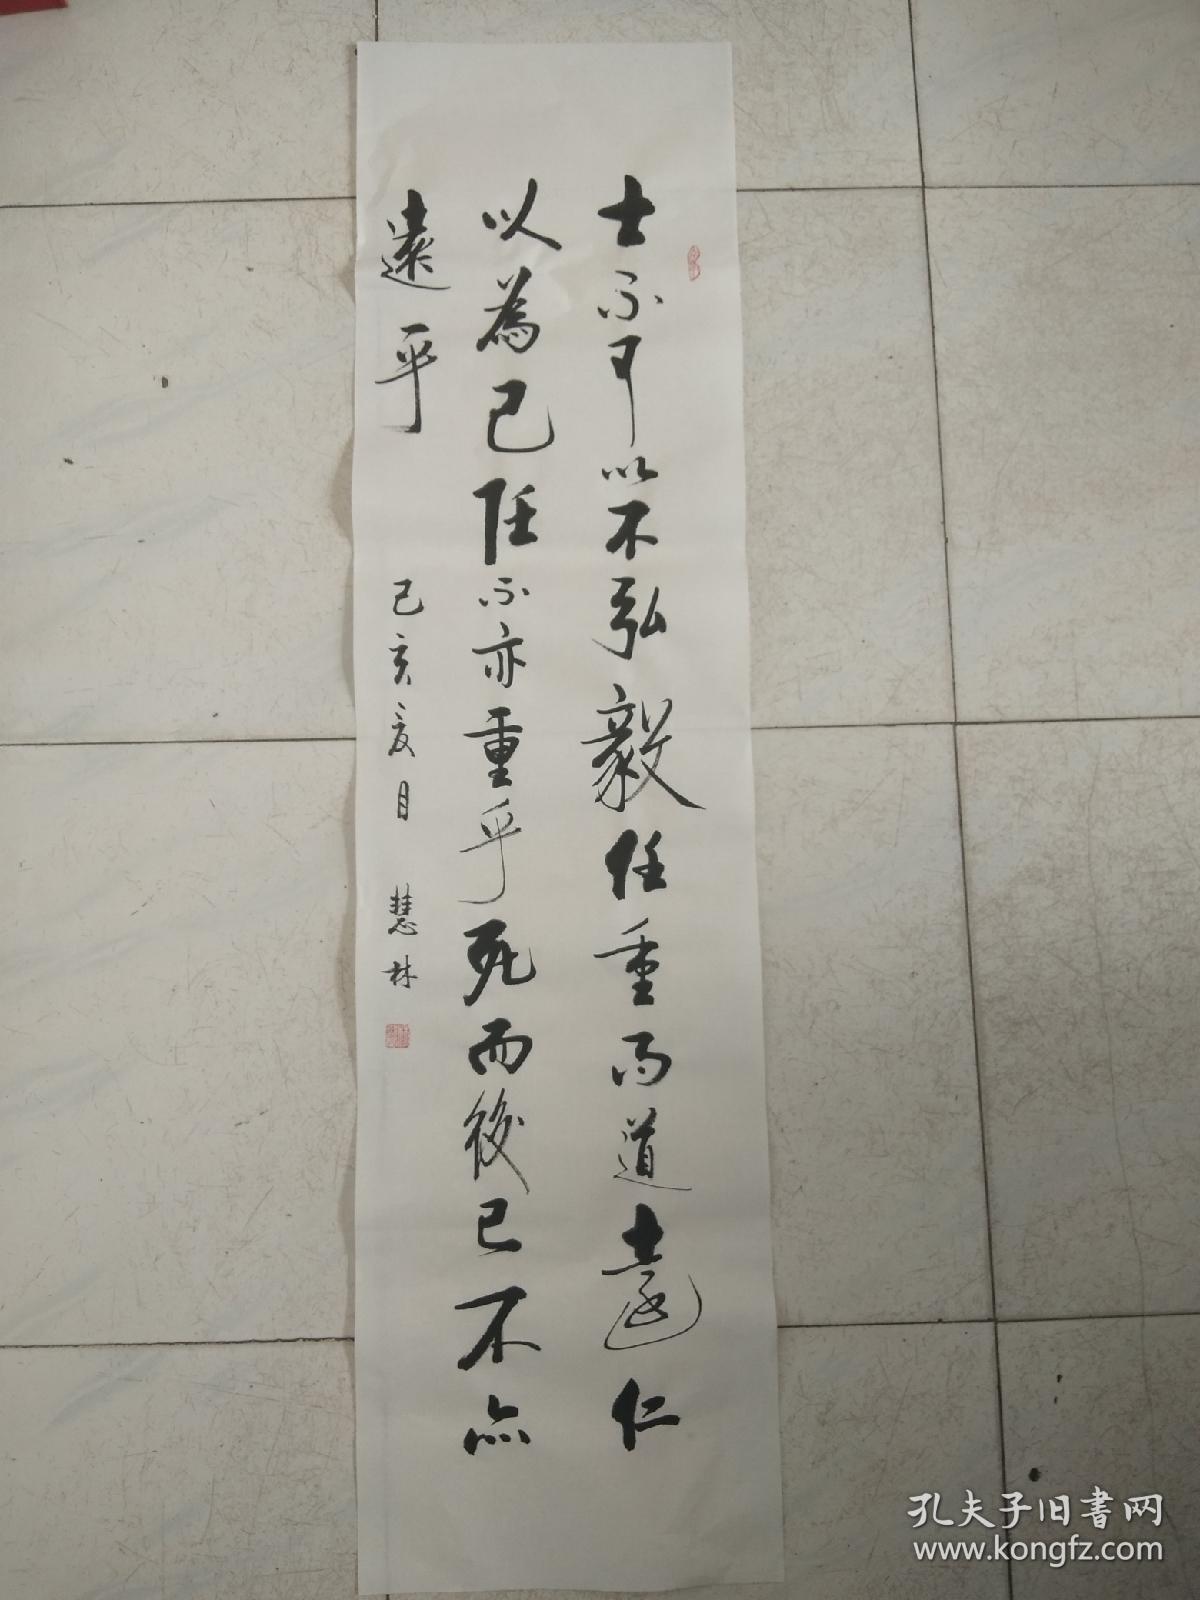 士不可以不弘毅任重而道遠仁
以為已任不亦重乎死而後已不亦
遠乎
己亥夏月 慧林
孔夫子旧書网
www.kongfz.com